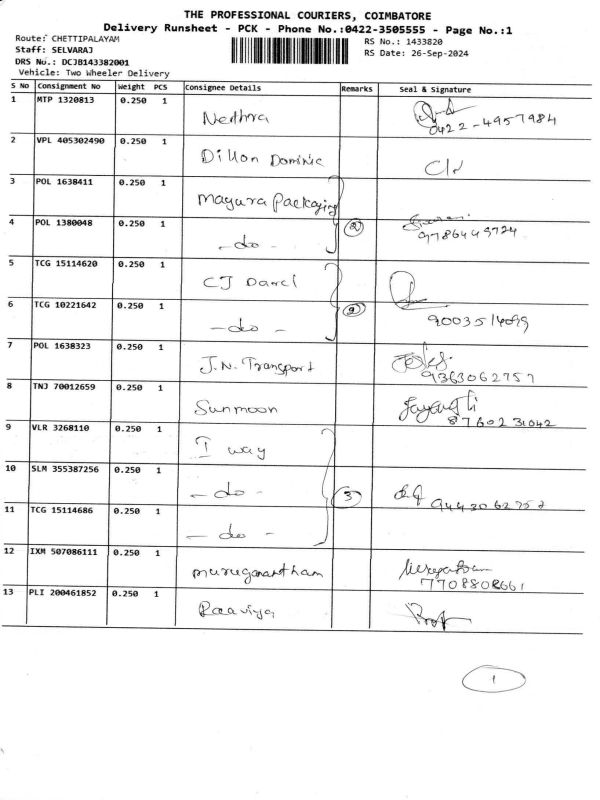 THE PROFESSIONAL COURIERS, COIMBATORE
Delivery Runsheet - PCK - Phone No.:0422-3505555 - Page No.:1
Route: CHETTIPALAYAM
Staff: SELVARAJ
DRS No.: DCJB143382001
Vehicle: Two Wheeler Delivery
RS No.: 1433820
RS Date: 26-Sep-2024
S No Consignment No Weight PCS Consignee Details Remarks Seal & Signature
1 MTP 1320813 0.250 1 Nethra 0422-4957984
2 VPL 405302490 0.250 1 Dillon Dominic
3 POL 1638411 0.250 1 Mayura Packaging
4 POL 1380048 0.250 1 -do- 2 9786449724
5 TCG 15114620 0.250 1 CJ Darcl
6 TCG 10221642 0.250 1 -do- 2
7 POL 1638323 0.250 1 J.N. Transport 9363062757
8 TNJ 70012659 0.250 1 Sunmoon Jayanthi 8760231042
9 VLR 3268110 0.250 1 I way
10 SLM 355387256 0.250 1 -do- 3
11 TCG 15114686 0.250 1 -do-
12 IXM 507086111 0.250 1 muruganantham 7708808661
13 PLI 200461852 0.250 1 Raaviya
1